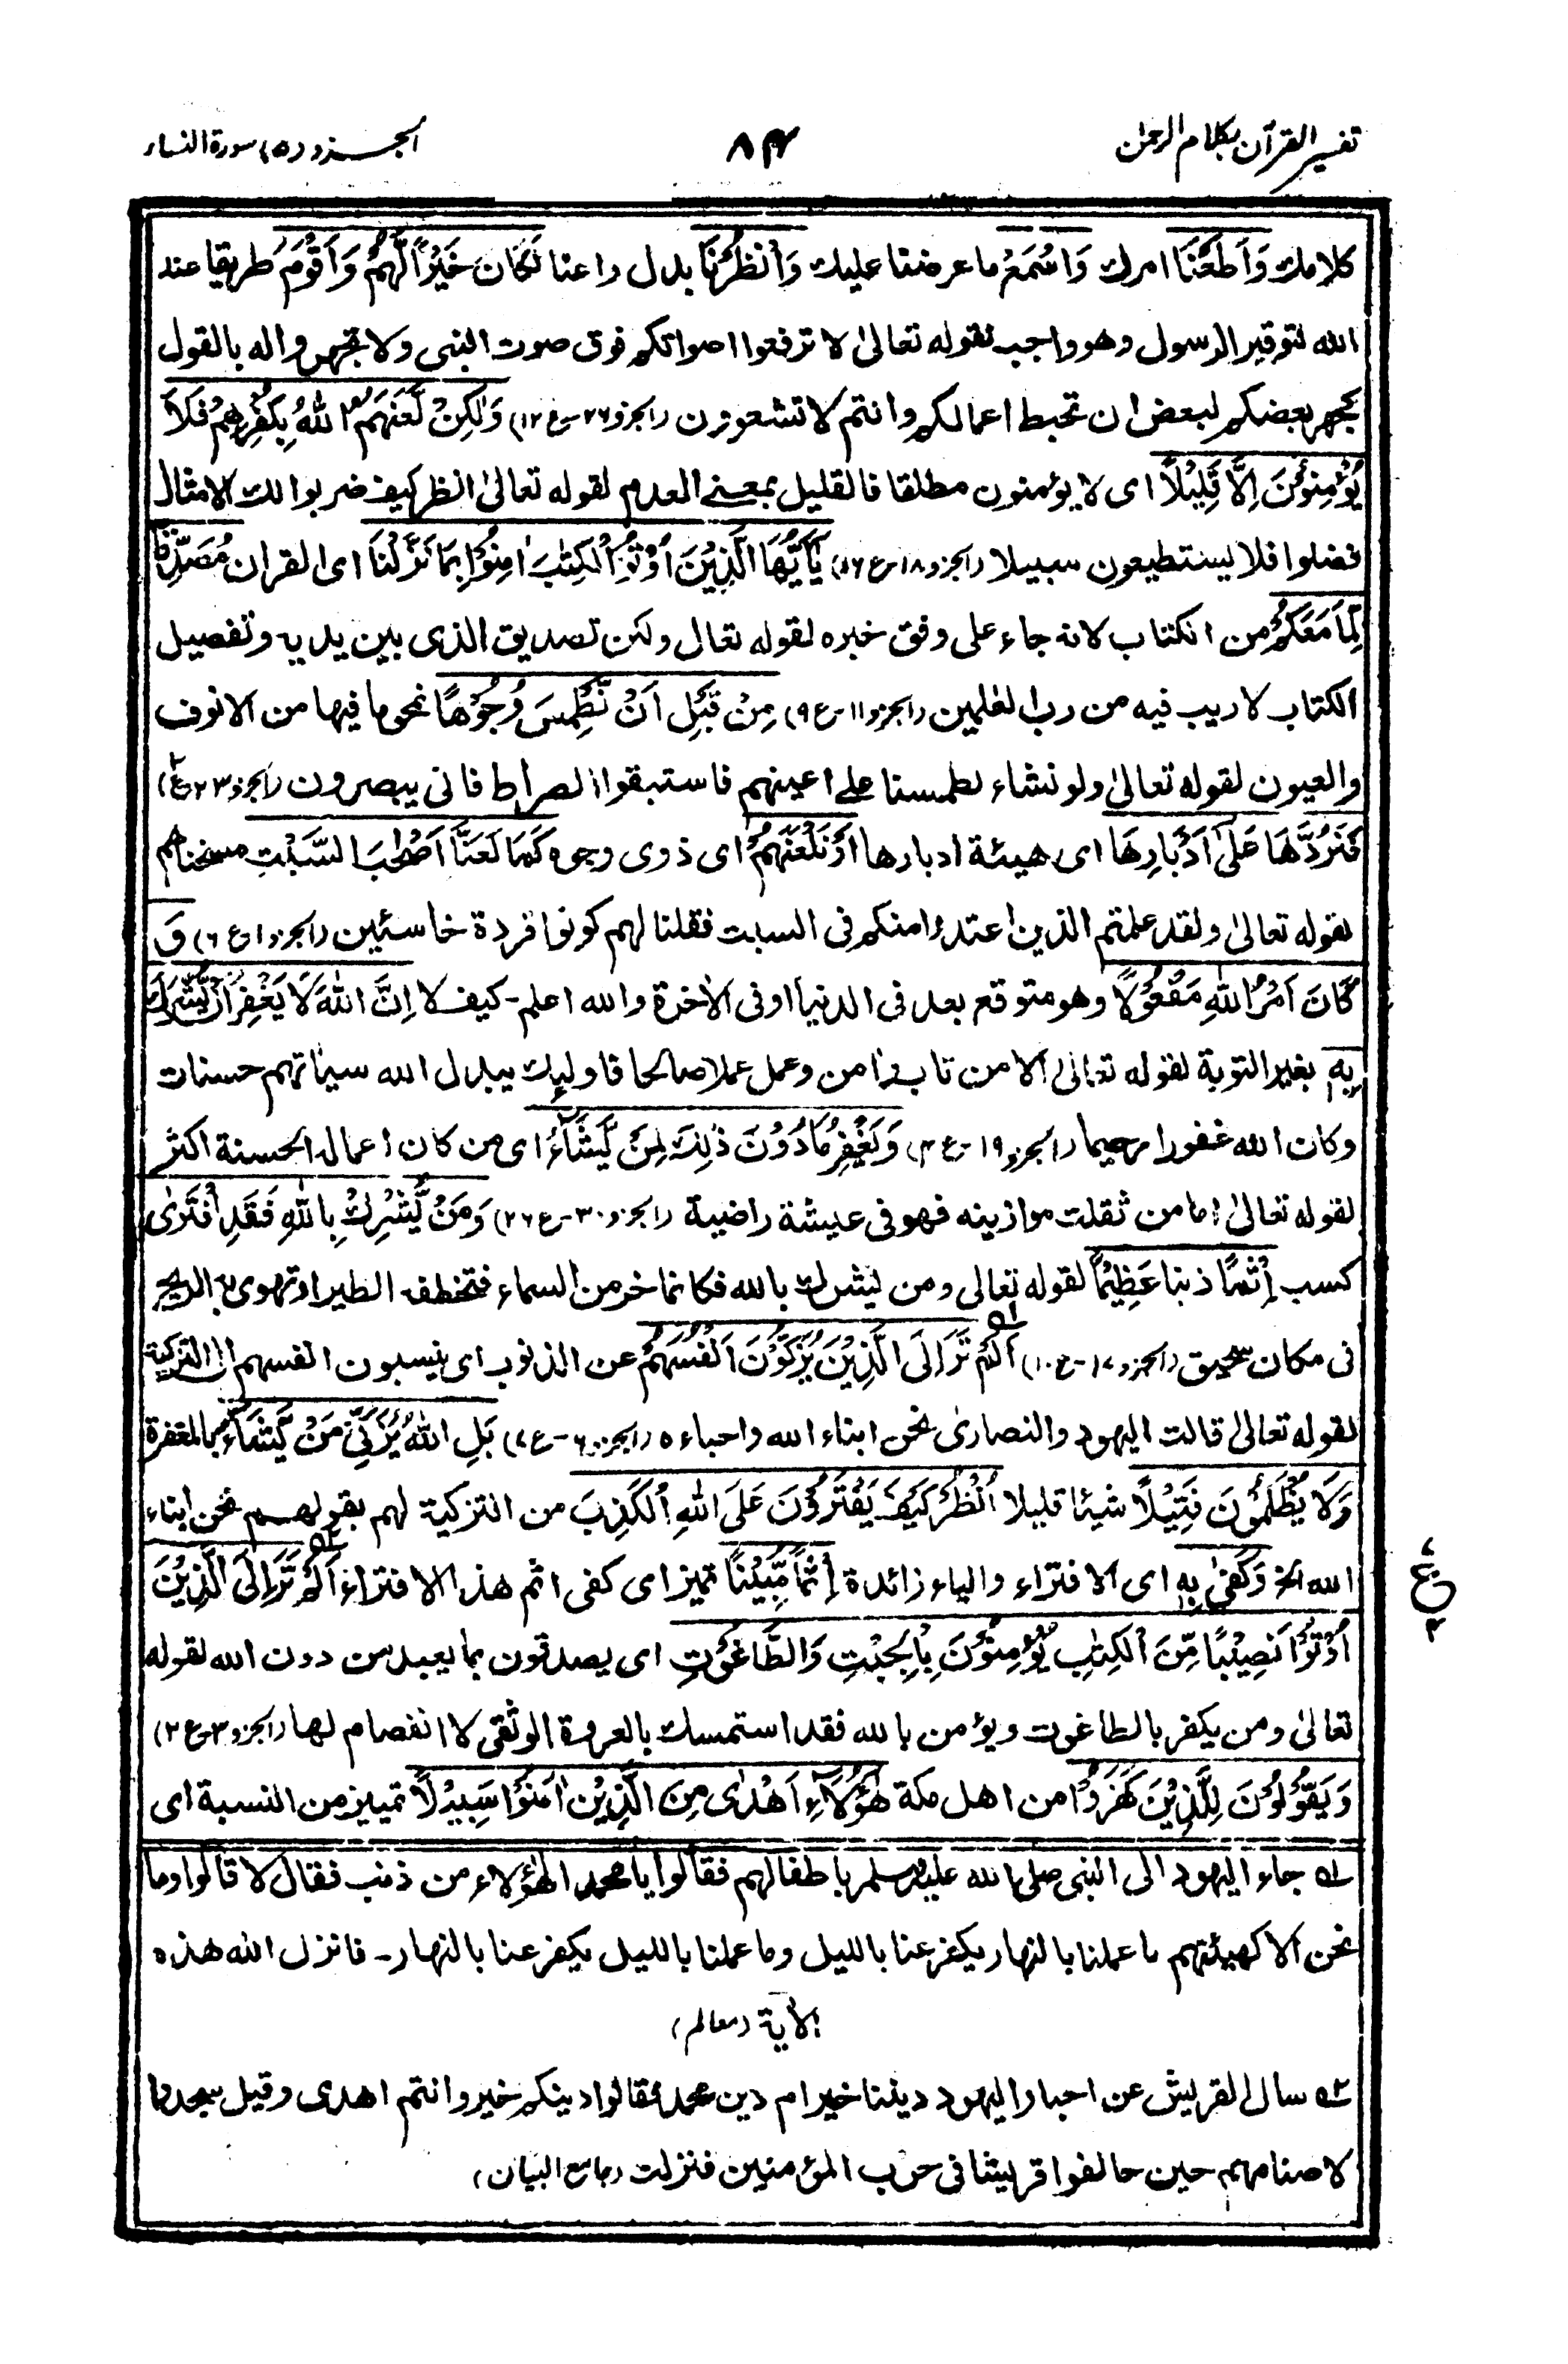 تفسير القرآن بكلام الرحمن
٨٤
الجزو (٥) سورة النساء
كلامك وَاَطَعْنَا امرك وَاسْمَعْ ما عرضنا عليك وَانْظُرْنَا بدل راعنا لَكَانَ خَيْرًا لَّهُمْ وَاَقْوَمَ طريقا عند
الله لتوقير الرسول وهو واجب لقوله تعالىٰ لا ترفعوا اصواتكم فوق صوت النبى ولا تجهروا له بالقول
كجهر بعضكم لبعض ان تحبط اعمالكم وانتم لا تشعرون (الجزو ٢٦-ع ١٢) وَلٰكِنْ لَّعَنَهُمُ اللهُ بِكُفْرِهِمْ فَلَا
يُؤْمِنُوْنَ اِلَّا قَلِيْلًا اى لا يؤمنون مطلقا فالقليل بمعنى العدم لقوله تعالىٰ انظر كيف ضربوا لك الامثال
فضلوا فلا يستطيعون سبيلا (الجزو ١٨-ع ١٦) يٰٓاَيُّهَا الَّذِيْنَ اُوْتُوا الْكِتٰبَ اٰمِنُوْا بِمَا نَزَّلْنَا اى القران مُصَدِّقًا
لِّمَا مَعَكُمْ من الكتاب لانه جاء على وفق خبره لقوله تعالى ولكن تصديق الذى بين يديه وتفصيل
الكتاب لا ريب فيه من رب العٰلمين (الجزو ١١-ع ٩) مِنْ قَبْلِ اَنْ نَّطْمِسَ وُجُوْهًا نمحو ما فيها من الانوف
والعيون لقوله تعالىٰ ولو نشاء لطمسنا على اعينهم فاستبقوا الصراط فانى يبصرون (الجزو ٢٣-ع ٣)
فَنَرُدَّهَا عَلٰى اَدْبَارِهَا اى هيئة ادبارها اَوْ نَلْعَنَهُمْ اى ذوى وجوه كَمَا لَعَنَّا اَصْحٰبَ السَّبْتِ مسخناهم
لقوله تعالىٰ ولقد علمتم الذين اعتدوا منكم فى السبت فقلنا لهم كونوا قردة خاسئين (الجزو ١ ع ٦) وَ
كَانَ اَمْرُ اللهِ مَفْعُوْلًا وهو متوقع بعد فى الدنيا او فى الاٰخرة والله اعلم - كيف لا اِنَّ اللهَ لَا يَغْفِرُ اَنْ يُّشْرَكَ
بِهٖ بغير التوبة لقوله تعالىٰ الا من تاب واٰمن وعمل عملا صالحا فاولٰئك يبدل الله سياٰتهم حسنات
وكان الله غفورا رحيما (الجزو ١٩-ع ٤) وَيَغْفِرُ مَا دُوْنَ ذٰلِكَ لِمَنْ يَّشَآءُ اى من كان اعماله الحسنة اكثر
لقوله تعالىٰ اما من ثقلت موازينه فهو فى عيشة راضية (الجزو ٣٠-ع ٢٦) وَمَنْ يُّشْرِكْ بِاللهِ فَقَدِ افْتَرٰى
كسب اِثْمًا ذنبا عَظِيْمًا لقوله تعالى ومن يشرك بالله فكانما خر من السماء فتخطفه الطير او تهوى به الريح
فى مكان سحيق (الجزو ١٧-ع ١٠) اَلَمْ تَرَ اِلَى الَّذِيْنَ يُزَكُّوْنَ اَنْفُسَهُمْ عن الذنوب اى ينسبون انفسهم الى التزكية
لقوله تعالىٰ قالت اليهود والنصارىٰ نحن ابناء الله واحباءه (الجزو ٦-ع ٧) بَلِ اللهُ يُزَكِّىْ مَنْ يَّشَآءُ بالمغفرة
وَلَا يُظْلَمُوْنَ فَتِيْلًا شيئا قليلا اُنْظُرْ كَيْفَ يَفْتَرُوْنَ عَلَى اللهِ الْكَذِبَ من التزكية لهم بقولهم نحن ابناء
الله الخ وَكَفٰى بِهٖ اى الافتراء والباء زائدة اِثْمًا مُّبِيْنًا تميز اى كفى اثم هذا الافتراء اَلَمْ تَرَ اِلَى الَّذِيْنَ
اُوْتُوْا نَصِيْبًا مِّنَ الْكِتٰبِ يُؤْمِنُوْنَ بِالْجِبْتِ وَالطَّاغُوْتِ اى يصدقون بما يعبد من دون الله لقوله
تعالىٰ ومن يكفر بالطاغوت ويؤمن بالله فقد استمسك بالعروة الوثقى لا انفصام لها (الجزو ٣-ع ٢)
وَيَقُوْلُوْنَ لِلَّذِيْنَ كَفَرُوْا من اهل مكة هٰٓؤُلَآءِ اَهْدٰى مِنَ الَّذِيْنَ اٰمَنُوْا سَبِيْلًا تمييز من النسبة اى
ع
٤
لـه جاء اليهود الى النبى صلى الله عليه وسلم باطفالهم فقالوا يا محمد الهٰؤلاء من ذنب فقال لا قالوا وما
نحن الا كهيئتهم ما عملنا بالنهار يكفر عنا بالليل وما عملنا بالليل يكفر عنا بالنهار - فانزل الله هذه
الاٰية (معالم)
٢ـه سال القريش عن احبار اليهود ديننا خير ام دين محمد فقالوا دينكم خير وانتم اهدى وقيل سجدوا
لاصنامهم حين حالفوا قريشا فى حرب المؤمنين فنزلت (جامع البيان)